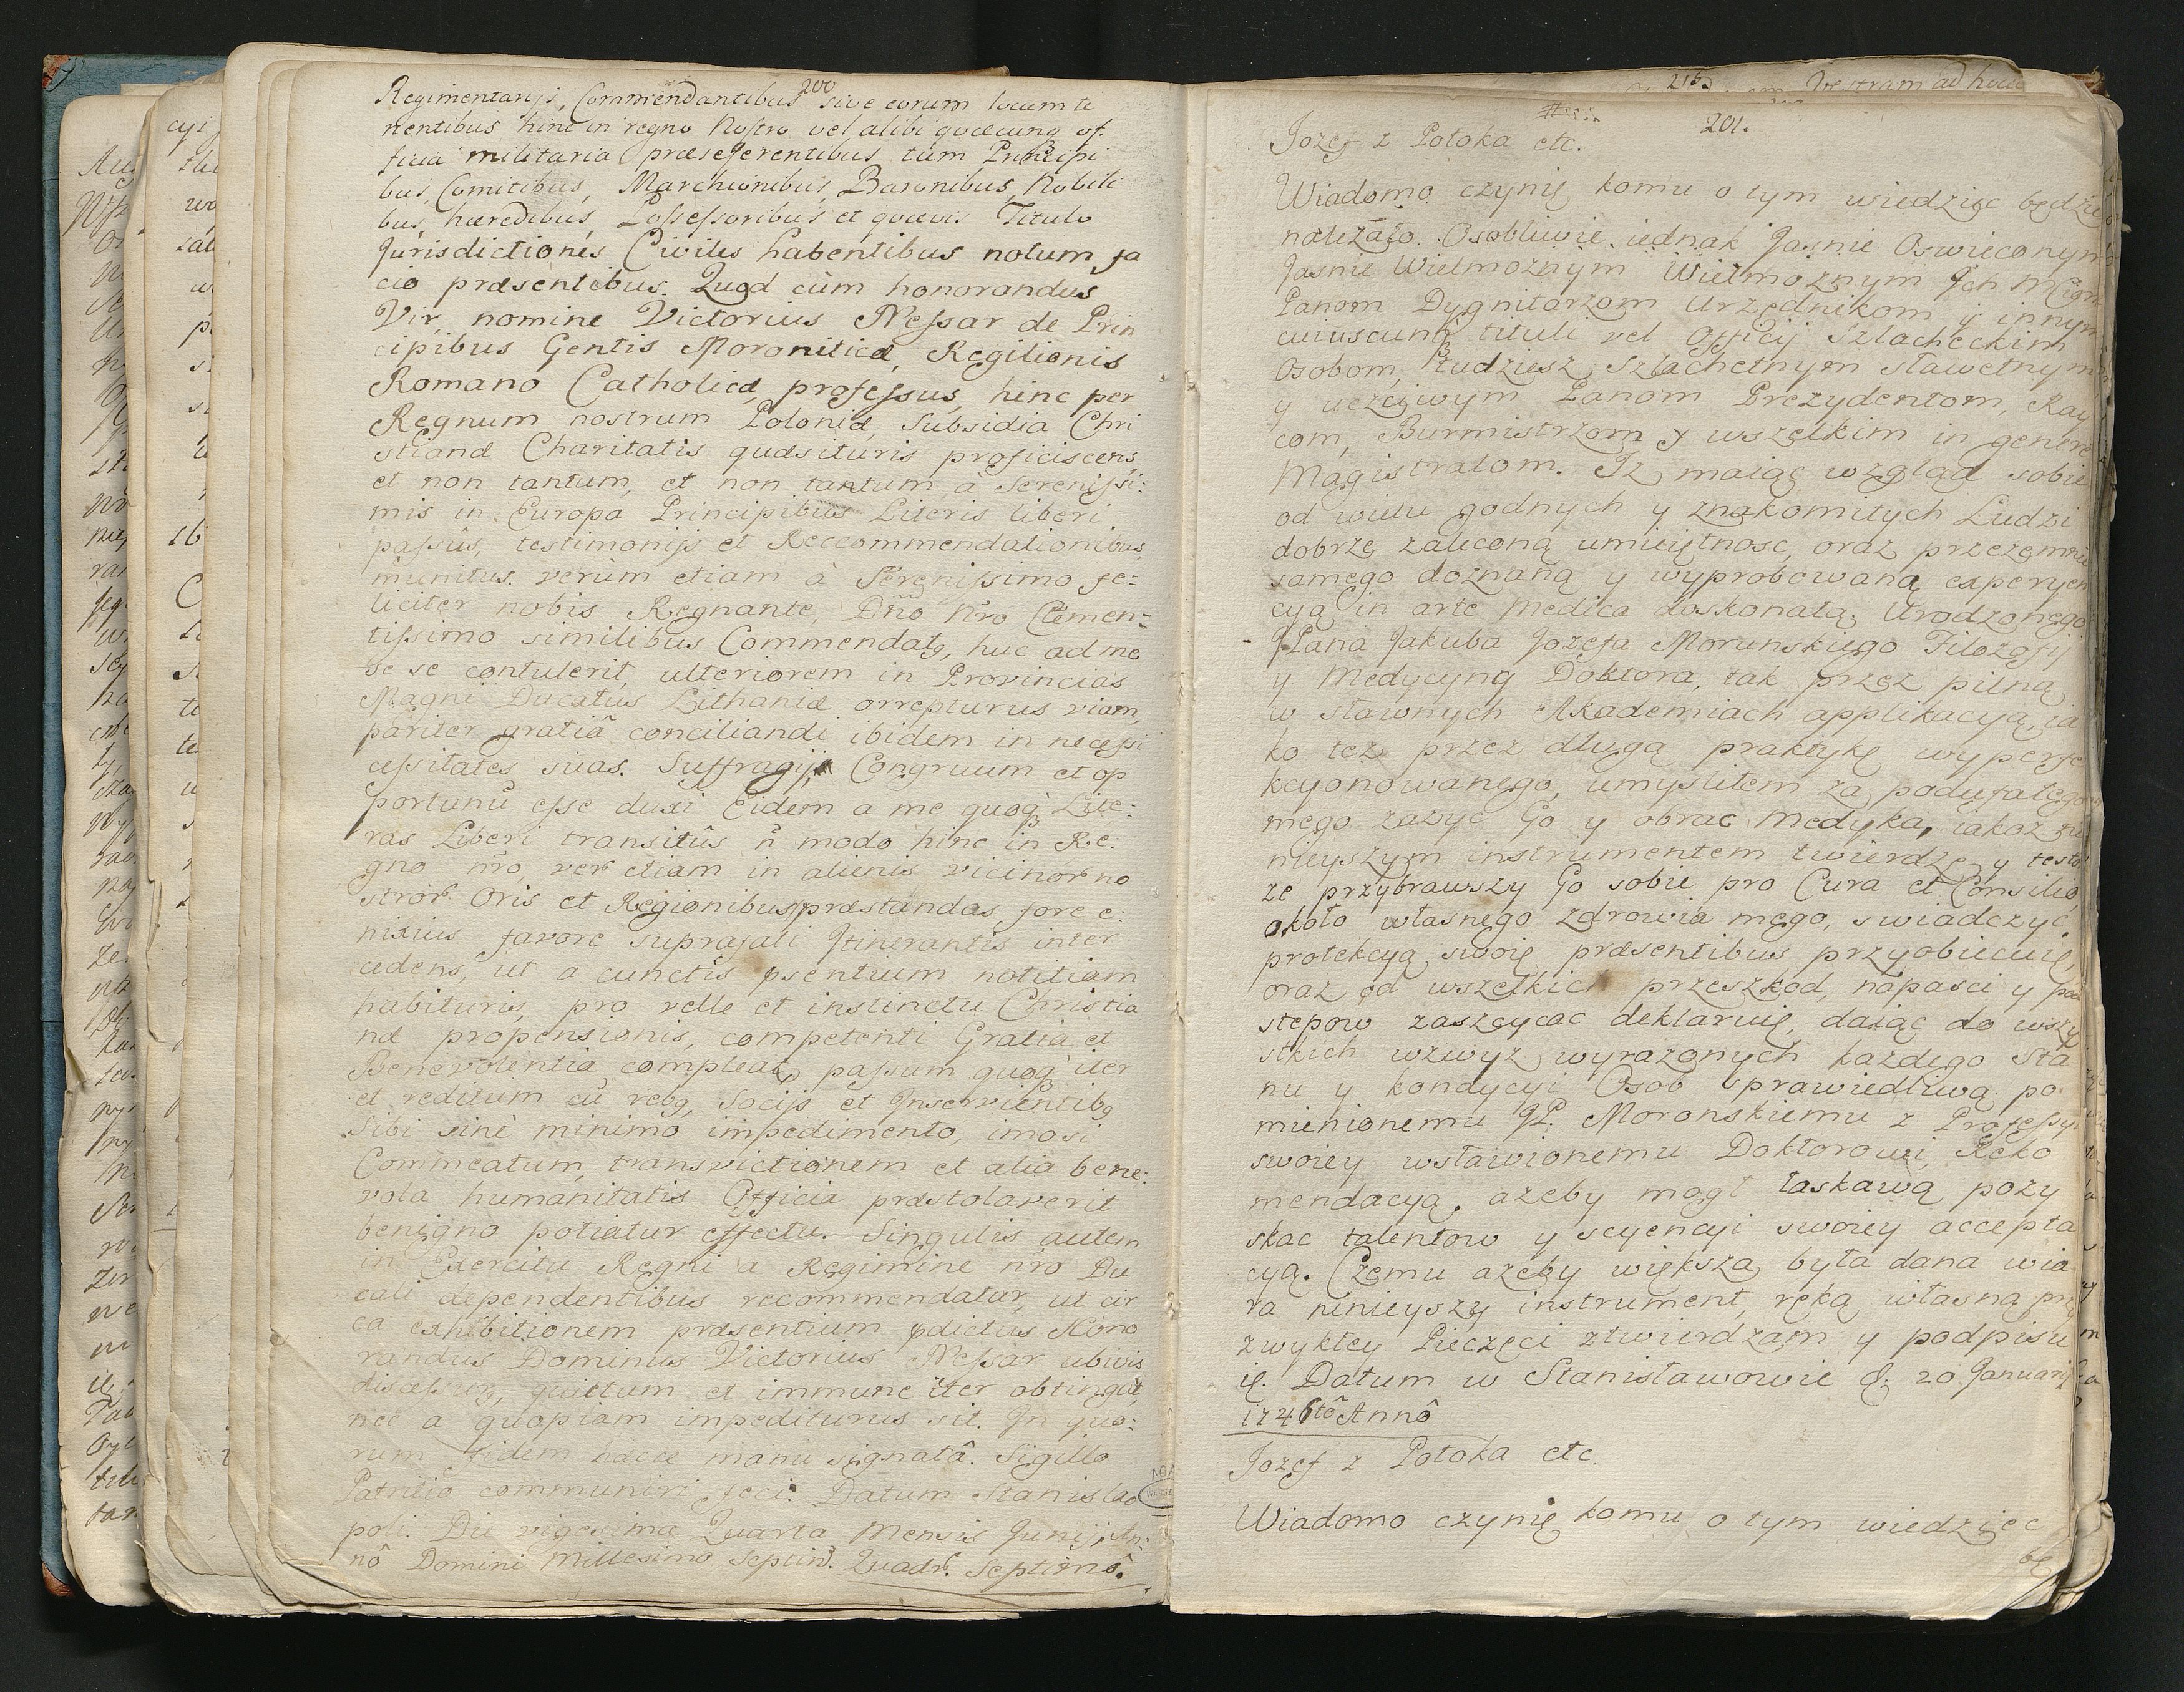 200
Regimentarijs, Commendantibus sive eorum locum te
nentibus hinc in regno Nostro vel alibi quæcunq of
ficia militaria præseferentibus, tum Principi
bus, Comitibus, Marchionibus, Baronibus, Nobili
bus, hæredibus, Possessoribus et quovis Titulo
Jurisdictiones Civiles habentibus notum fa
cio præsentibus. Quod cùm honorandus
Vir, nomine Victorius Nessar de Prin
cipibus Gentis Moroniticæ, Regilionis
Romano Catholicæ, professus, hinc per
Regnum nostrum Poloniæ, Subsidia Chri
stianæ Charitatis quæsituris proficiscens,
et non tantum, et non tantum à Serenissi:
mis in Europa Principibus Literis liberi
passûs, testimonijs et Reccommendationibus,
munitus. verùm etiam à Serenissimo fe=
liciter nobis Regnante, Dño Nro Clemen=
tissimo similibus Commendatq, huc ad me
se se contulerit, ulteriorem in Provincias
Magni Ducatûs Lithaniæ arrepturus viam,
pariter gratiâ conciliandi ibidem in necessi
cessitates suas. Suffragij Congruum et op
portunũ esse duxi Eidem a me quoq Lite:
ras Liberi transitûs ñ modo hinc in Re:
gno nro, ver etiam in alienis vicinor no
stror. Oris et Regionibus præstandas, fore e:
nixius favore suprafati Itinerantis inter
cedens, ut a cunctis psentium notitiam
habituris, pro velle et instinctu Christia
næ propensionis, competenti Gratia et
Benevolentia compleatq passum quoq iter
et reditum cũ rebq, Socijs et Inservientibq
Sibi sine minimo impedimento, imo si
Commeatum, transvictionem et alia bene:
vola humanitatis Officia præstolaverit
benigno potiatur effectu. Singulis autem
in Exercitu Regni a Regimine nro Du
cali dependentibus recommendatur, ut cir
ca exhibitionem præsentium pdictus Hono
randus Dominus Victorius Nessar ubivis
discessurq, quietum et immune iter obtingat,
nec a quopiam impediturus sit. In quo:
rum fidem hæcce manu signatâ. Sigillo
Patritio communiri feci. Datum Stanislao
poli. Die vigesima Quarta Mensis Junij, An:
nô Domini Millesimo Septin. Quadr. Septimô.
216.
Vestram ad hocce
201.
Jozef z Potoka etc.
Wiadomo czynię komu o tym wiedzięc będzie
nalezało. Osobliwie iednak Jasnie Oswieconym
Jasnie Wielmoznym Wielmoznym Ich Mciom
Panom Dygnitarzom Urzędnikom y innym
cuiuscunq tituli vel Officij Szlacheckim
Osobom, tudziesz Szlachetnym sławetnym
y uczciwym Panom Prezydentom, Ray
com, Burmistrzom y wszelkim in genere
Magistratom. Iz maiąc wzgląd sobie
od wielu godnych y znakomitych Ludzi
dobrze zaleconą umieiętnosc, oraz przezemnie
samego doznaną y wyprobowaną experyen
cyą in arte Medica doskonałą, Urodzonego
JPana Jakuba Jozefa Moronskiego Filozofij
y Medycyny Doktora, tak przez pilną
w sławnych Akademiach applikacyą, ia
ko tez przez długą praktykę wyperfe
kcyonowanego, umysliłem za podufałego
mego zazyc Go y obrac Medyka, iakoz ni
nieyszym instrumentem twierdzę y testor
ze przybrawszy Go sobie pro Cura et Consilio,
około własnego zdrowia mego, swiadczyc
protekcyą swoię præsentibus przyobiecuię,
oraz od wszelkich przeszkod, napasci y pod
stepow zaszcycac deklaruię, daiąc do wszy
stkich wzwyz wyrazonych kazdego Sta
nu y kondycyi Osob sprawiedliwą po
mienionemu JP. Moronskiemu z Professyi
swoiey wsławionemu Doktorowi, Reko
mendacyą, azeby mogł łaskawą pozy
skac talentow y scyencyi swoiey accepta
cyą. Czemu azeby większa była dana wia
ra ninieyszy instrument, ręką własną przy
zwykłey Pieczęci ztwierdzam y podpisu
ię. Datum w Stanisławowie d. 20 Januarij
1746tô Annô
Jozef z Potoka etc.
Wiadomo czynię komu o tym wiedzięc
bę